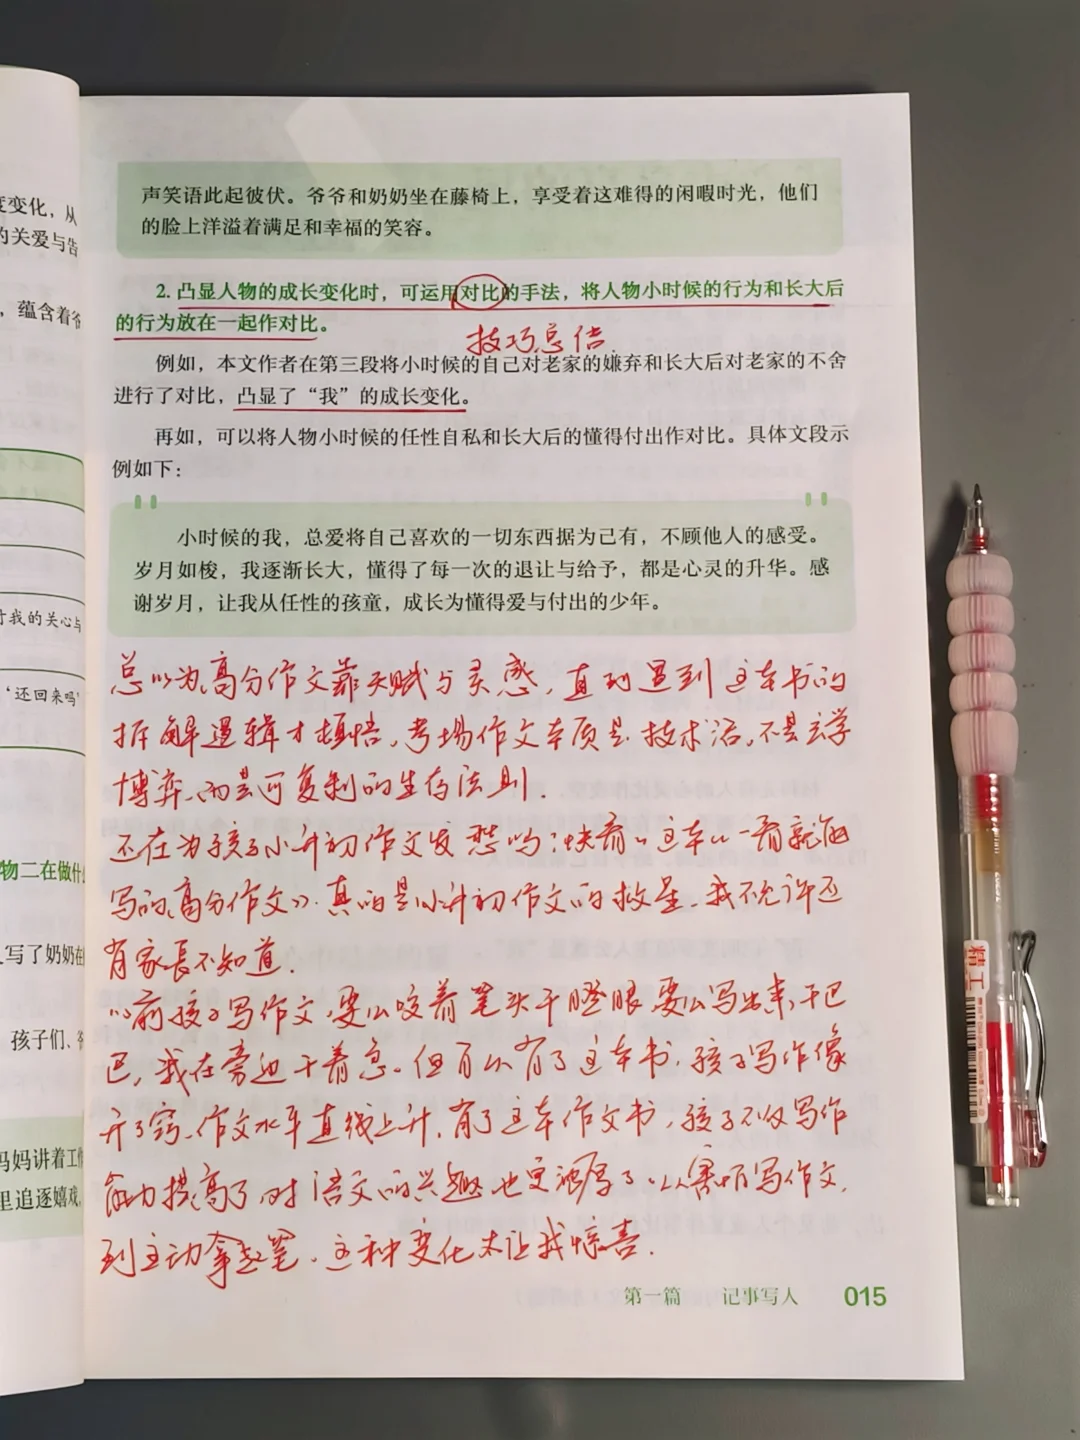 度变化，从
的关爱与告
，蕴含着爷
对我的关心与
‘还回来吗’
物二在做什么
写了奶奶在
孩子们、爷
妈妈讲着工作
里追逐嬉戏，
声笑语此起彼伏。爷爷和奶奶坐在藤椅上，享受着这难得的闲暇时光，他们
的脸上洋溢着满足和幸福的笑容。
2. 凸显人物的成长变化时，可运用对比的手法，将人物小时候的行为和长大后
的行为放在一起作对比。
技巧总结
例如，本文作者在第三段将小时候的自己对老家的嫌弃和长大后对老家的不舍
进行了对比，凸显了“我”的成长变化。
再如，可以将人物小时候的任性自私和长大后的懂得付出作对比。具体文段示
例如下：
小时候的我，总爱将自己喜欢的一切东西据为己有，不顾他人的感受。
岁月如梭，我逐渐长大，懂得了每一次的退让与给予，都是心灵的升华。感
谢岁月，让我从任性的孩童，成长为懂得爱与付出的少年。
总以为高分作文靠天赋与灵感，直到遇到这本书的
拆解逻辑才顿悟，考场作文本质是技术活，不是玄学
博弈，而是可复制的生存法则.
还在为孩子小升初作文发愁吗？快看《这本《一看就会
写的高分作文》》.真的是小升初作文的救星.我不允许还
有家长不知道.
以前孩子写作文，要么咬着笔头干瞪眼，要么写出来干巴
巴，我在旁边干着急。但自从有了这本书，孩子写作像
开了窍，作文水平直线上升，有了这本作文书，孩子不仅写作
能力提高了，对语文的兴趣也更浓厚了，从害怕写作文，
到主动拿起笔，这种变化太让我惊喜.
第一篇 记事写人 015
精工